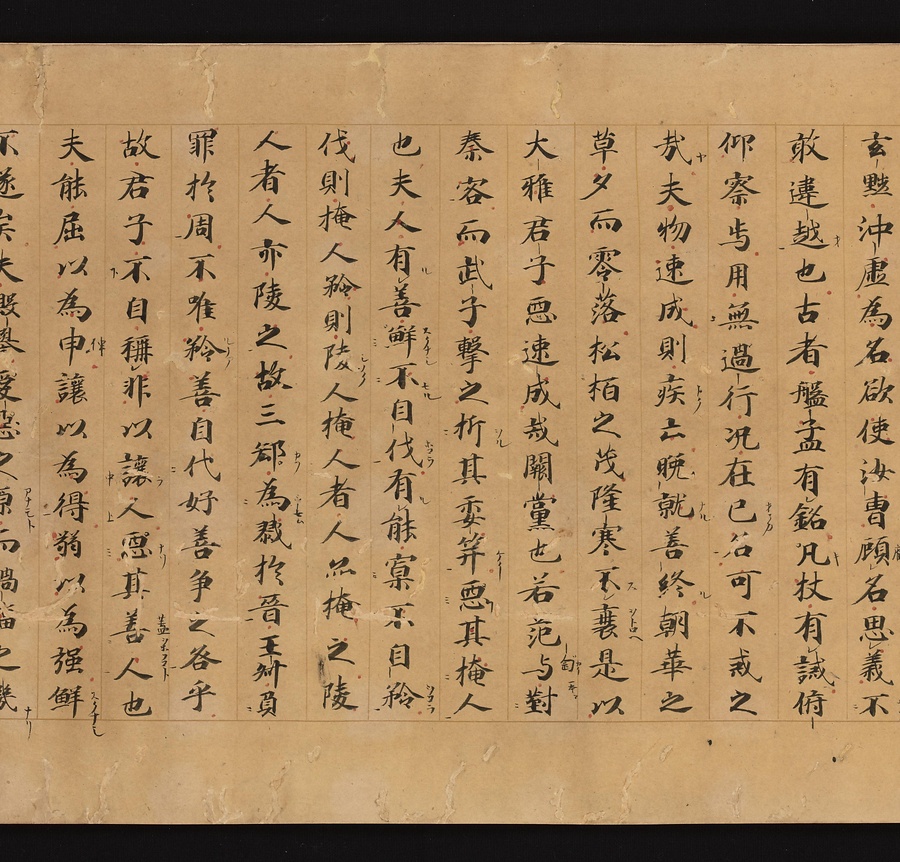 玄默沖虛為名欲使汝曹顧名思義不
敢違越也古者盤盂有銘凡杖有誡俯
仰察与用無過行況在已名可不戒之
哉夫物速成則疾亡晚就善終朝華之
草夕而零落松栢之茂隆寒不衰是以
大雅君子惡速成哉闕黨也若范匄与對
秦客而武子擊之折其委笄惡其掩人
也夫人有善鮮不自伐有能寡不自矜
伐則掩人矜則陵人掩人者人亦掩之陵
人者人亦陵之故三郤為戮於晉王叔負
罪於周不唯矜善自代好善争之咎乎
故君子不自稱非以讓人惡其善人也
夫能屈以為申讓以為得弱以為强鮮
不遂矣夫毀譽愛惡之原而禍福之機